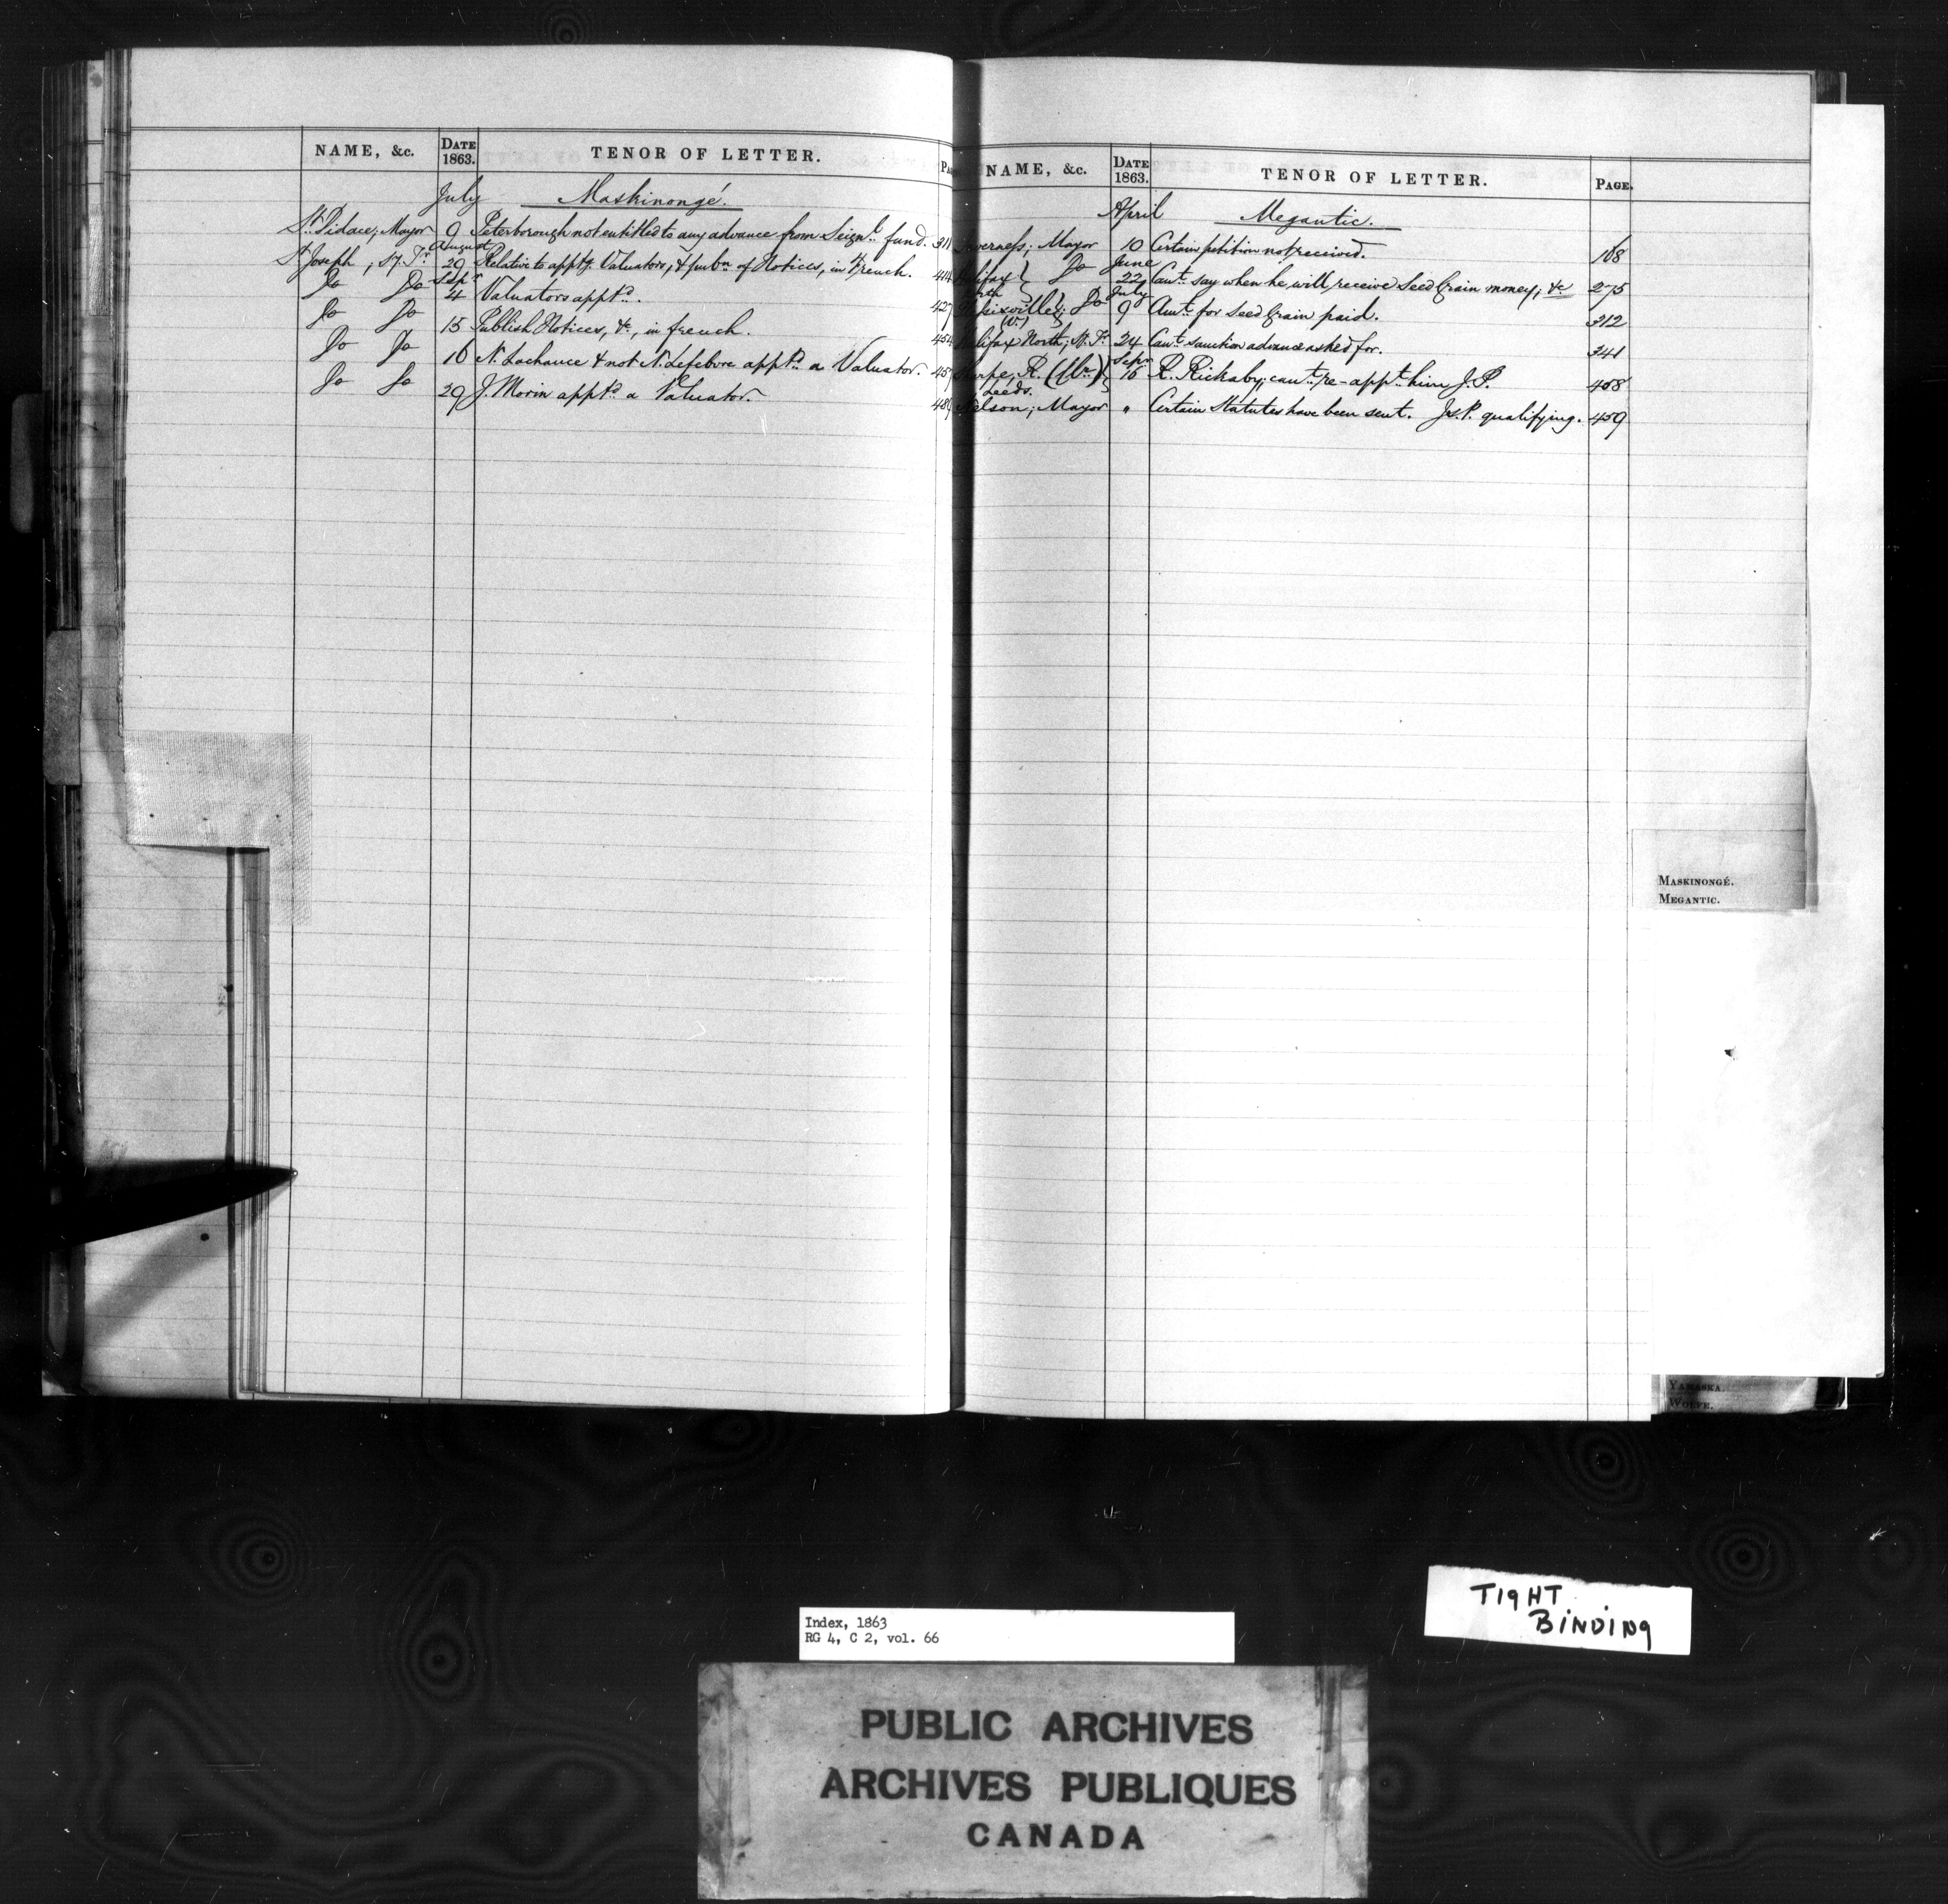 NAME, &c. DATE 1863. TENOR OF LETTER.
July Maskinongé.
St. Didace; Mayor 9 Peterborough not entitled to any advance from Seignl. fund. 311
August
St. Joseph, S.T. 29 Relative to apptg. Valuators, & pubn. of Notices, in French. 414
Sepr.
Do Do 4 Valuators apptd. 427
Do Do 15 Publish Notices, &c, in french. 454
Do Do 16 N. Lachance & not N. Lefebvre apptd. a Valuator. 457
Do Do 29 J. Morin apptd. a Valuator. 489
NAME, &c. DATE 1863. TENOR OF LETTER. PAGE.
April Megantic.
Inverness; Mayor 10 Certain petition not received. 168
June
Halifax North } Do 22 Can't say when he will receive Seed Grain money; &c 275
July
Do 9 Amt. for Seed Grain paid. 312
Halifax North; 24 Can't sanction advance asked for. 341
Sepr.
R. (Mr.) Leeds. 15 R. Rickaby; can't re-appt. him J.P. 458
Nelson; Mayor " Certain Statutes have been sent. Js.P. qualifying. 459
MASKINONGÉ.
MEGANTIC.
YAMASKA.
WOLFE.
TIGHT
BINDING
Index, 1863
RG 4, C 2, vol. 66
PUBLIC ARCHIVES
ARCHIVES PUBLIQUES
CANADA